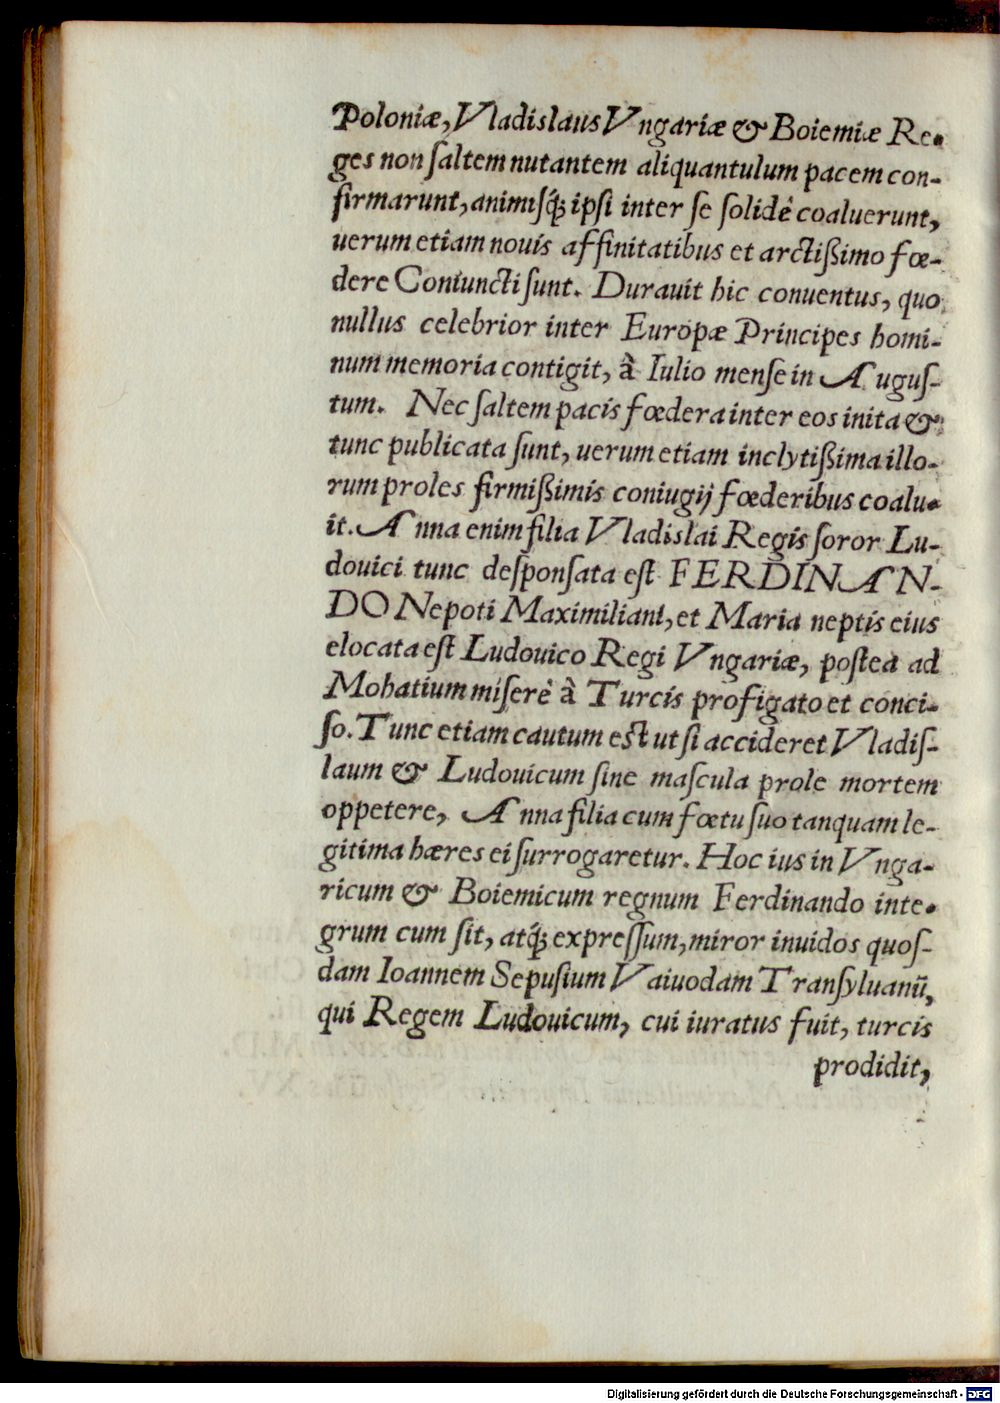 Poloniæ, Vladislaus Vngariæ & Boiemiæ Re-
ges non ſaltem nutantem aliquantulum pacem con-
firmarunt, animisq́ꝫ ipſi inter ſe ſolidè coaluerunt,
uerum etiam nouis affinitatibus et arctißimo fœ-
dere Coniuncti ſunt. Durauit hic conuentus, quo
nullus celebrior inter Europæ Principes homi-
num memoria contigit, à Iulio menſe in Auguſ-
tum. Nec ſaltem pacis fœdera inter eos inita &
tunc publicata ſunt, uerum etiam inclytißima illo-
rum proles firmißimis coniugij fœderibus coalu-
it. Anna enim filia Vladislai Regis ſoror Lu-
douici tunc deſponſata eſt FERDINAN-
DO Nepoti Maximiliani, et Maria neptis eius
elocata eſt Ludouico Regi Vngariæ, poſtea ad
Mohatium miſerè à Turcis profigato et conci-
ſo. Tunc etiam cautum eſt ut ſi accideret Vladiſ-
laum & Ludouicum ſine maſcula prole mortem
oppetere, Anna filia cum fœtu ſuo tanquam le-
gitima hæres ei ſurrogaretur. Hoc ius in Vnga-
ricum & Boiemicum regnum Ferdinando inte-
grum cum ſit, atq́ꝫ expreſſum, miror inuidos quoſ-
dam Ioannem Sepuſium Vaiuodam Tranſyluanū,
qui Regem Ludouicum, cui iuratus fuit, turcis
prodidit,
Digitalisierung gefördert durch die Deutsche Forschungsgemeinschaft - DFG